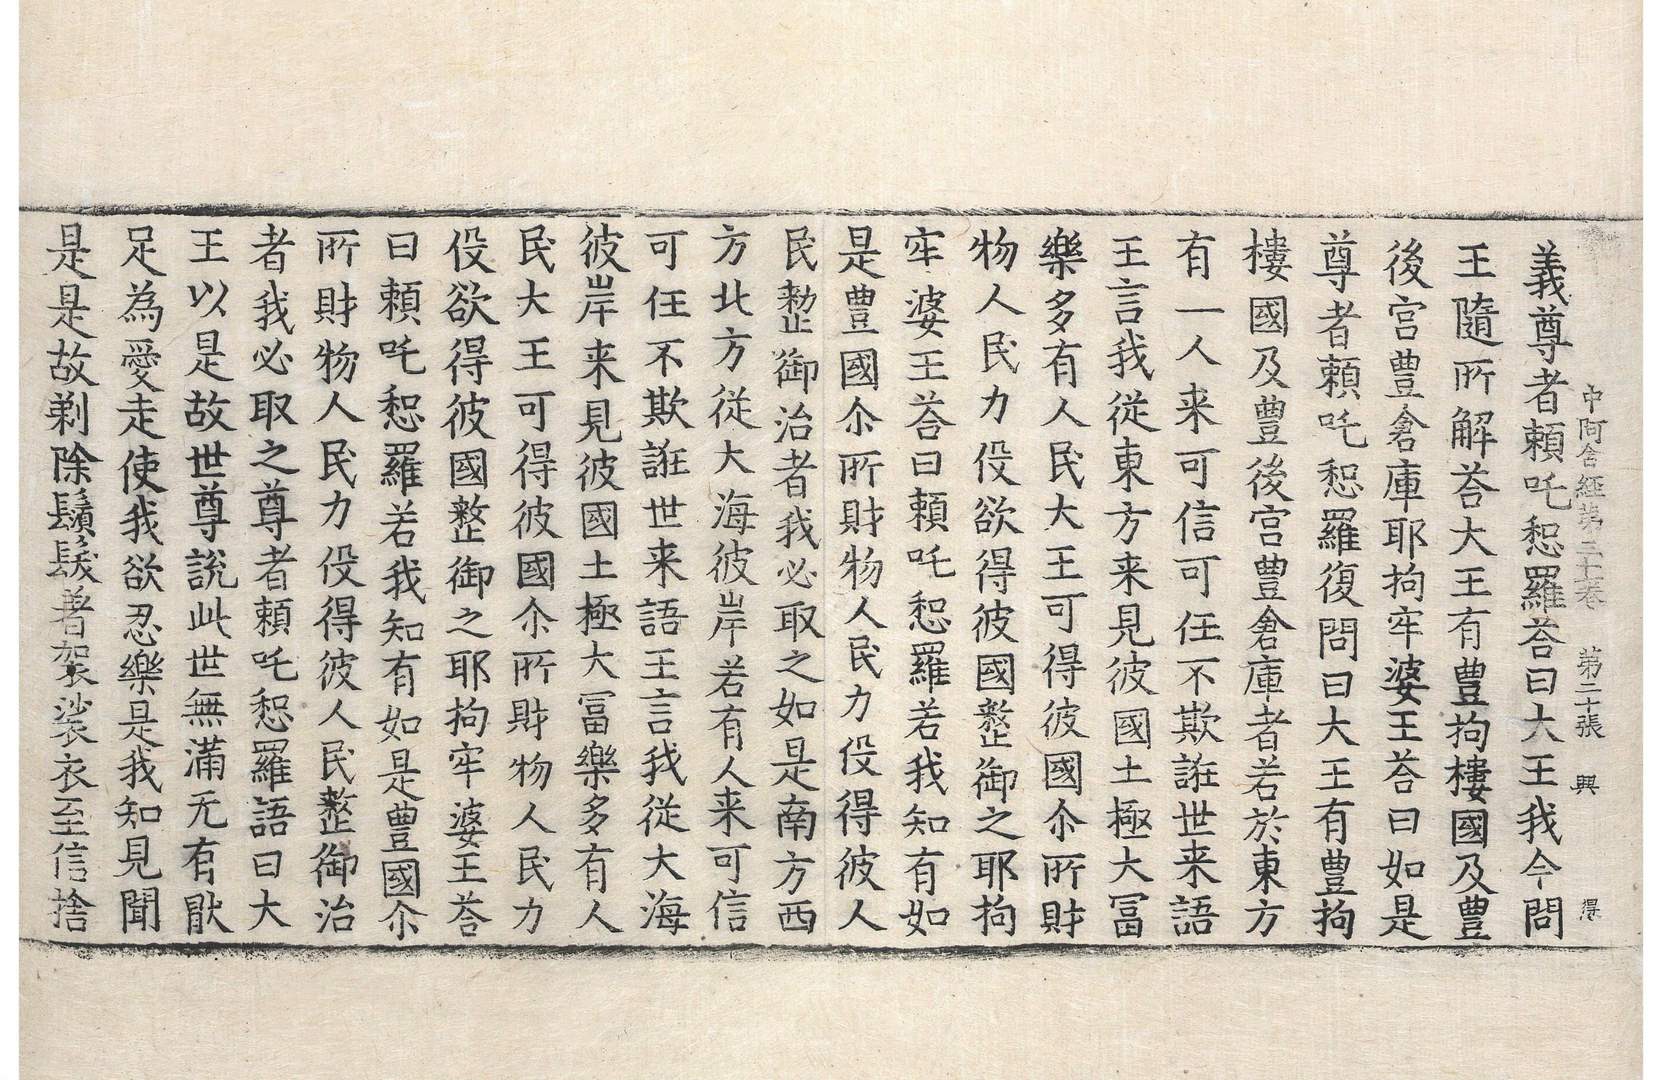 中阿含經第三十卷 第二十張 興 得
義尊者頼吒惒羅荅曰大王我今問
王隨所解荅大王有豊拘樓國及豊
後宫豊倉庫耶拘牢婆王荅曰如是
尊者頼吒惒羅復問曰大王有豊拘
樓國及豊後宫豊倉庫者若於東方
有一人来可信可任不欺誑世来語
王言我從東方来見彼國土極大冨
樂多有人民大王可得彼國尒所財
物人民力役欲得彼國整御之耶拘
牢婆王荅曰頼吒惒羅若我知有如
是豊國尒所財物人民力役得彼人
民整御治者我必取之如是南方西
方北方從大海彼岸若有人来可信
可任不欺誑世来語王言我從大海
彼岸来見彼國土極大冨樂多有人
民大王可得彼國尒所財物人民力
役欲得彼國整御之耶拘牢婆王荅
曰頼吒惒羅若我知有如是豊國尒
所財物人民力役得彼人民整御治
者我必取之尊者頼吒惒羅語曰大
王以是故世尊說此世無滿无有猒
足為愛走使我欲忍樂是我知見聞
是是故剃除鬚髮著袈裟衣至信捨